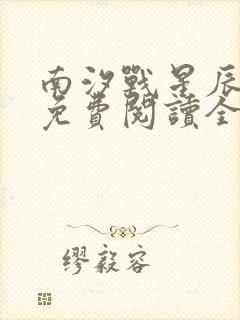 南汐戰星辰
免費閱讀全
繆毅容